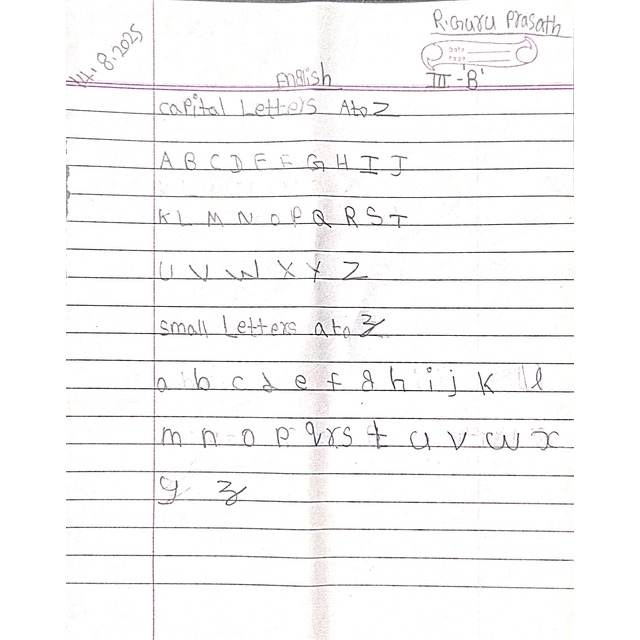 14.8.2025
R.Guru Prasath
III-'B'
English
capital Letters A to Z
A B C D E F G H I J
K L M N O P Q R S T
U V W X Y Z
small Letters a to z
a b c d e f g h i j k l
m n o p q r s t u v w x
y z